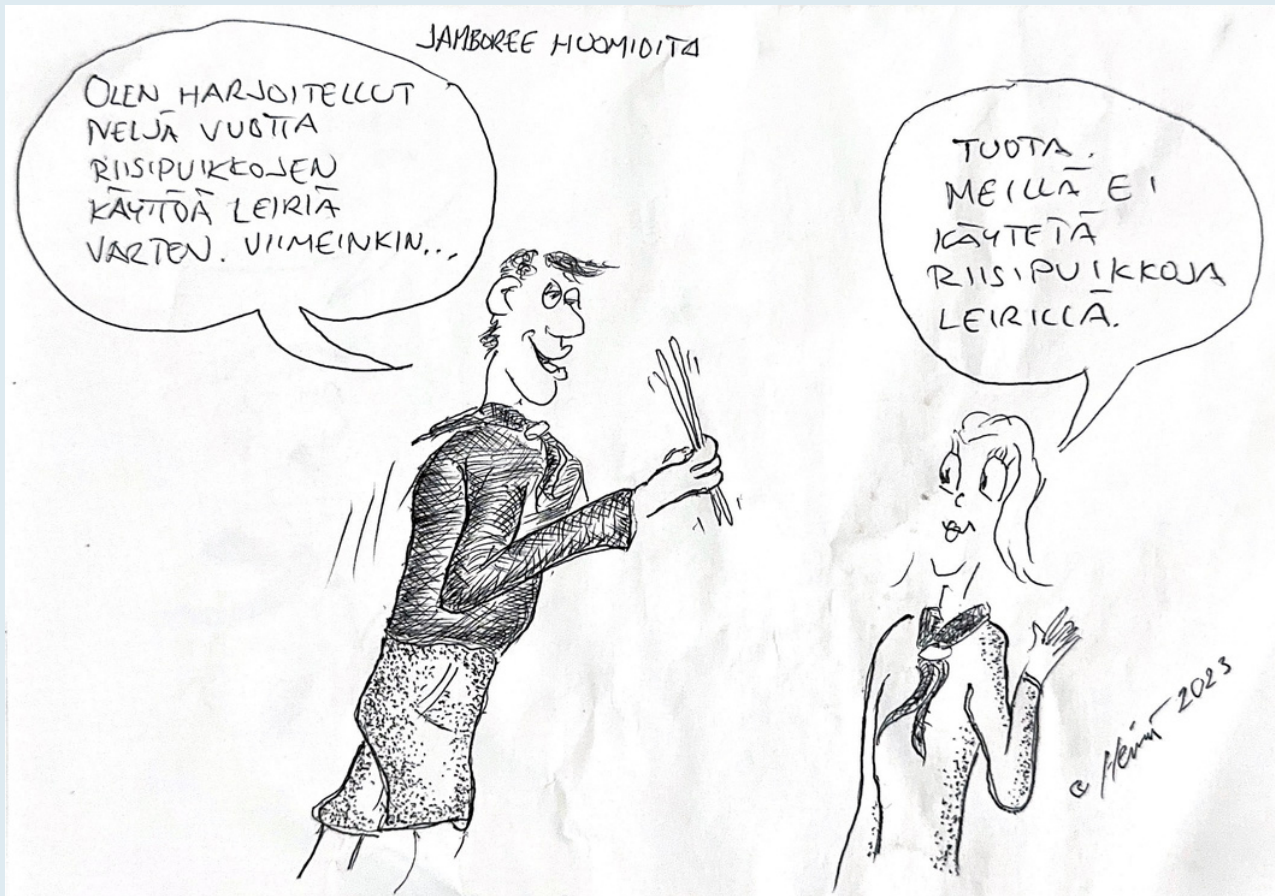 JAMBOREE HUOMIOITA
OLEN HARJOITELLUT
NELJÄ VUOTTA
RIISIPUIKKOJEN
KÄYTTÖÄ LEIRIÄ
VARTEN. VIIMEINKIN...
TUOTA.
MEILLÄ EI
KÄYTETÄ
RIISIPUIKKOJA
LEIRILLÄ.
© 2023